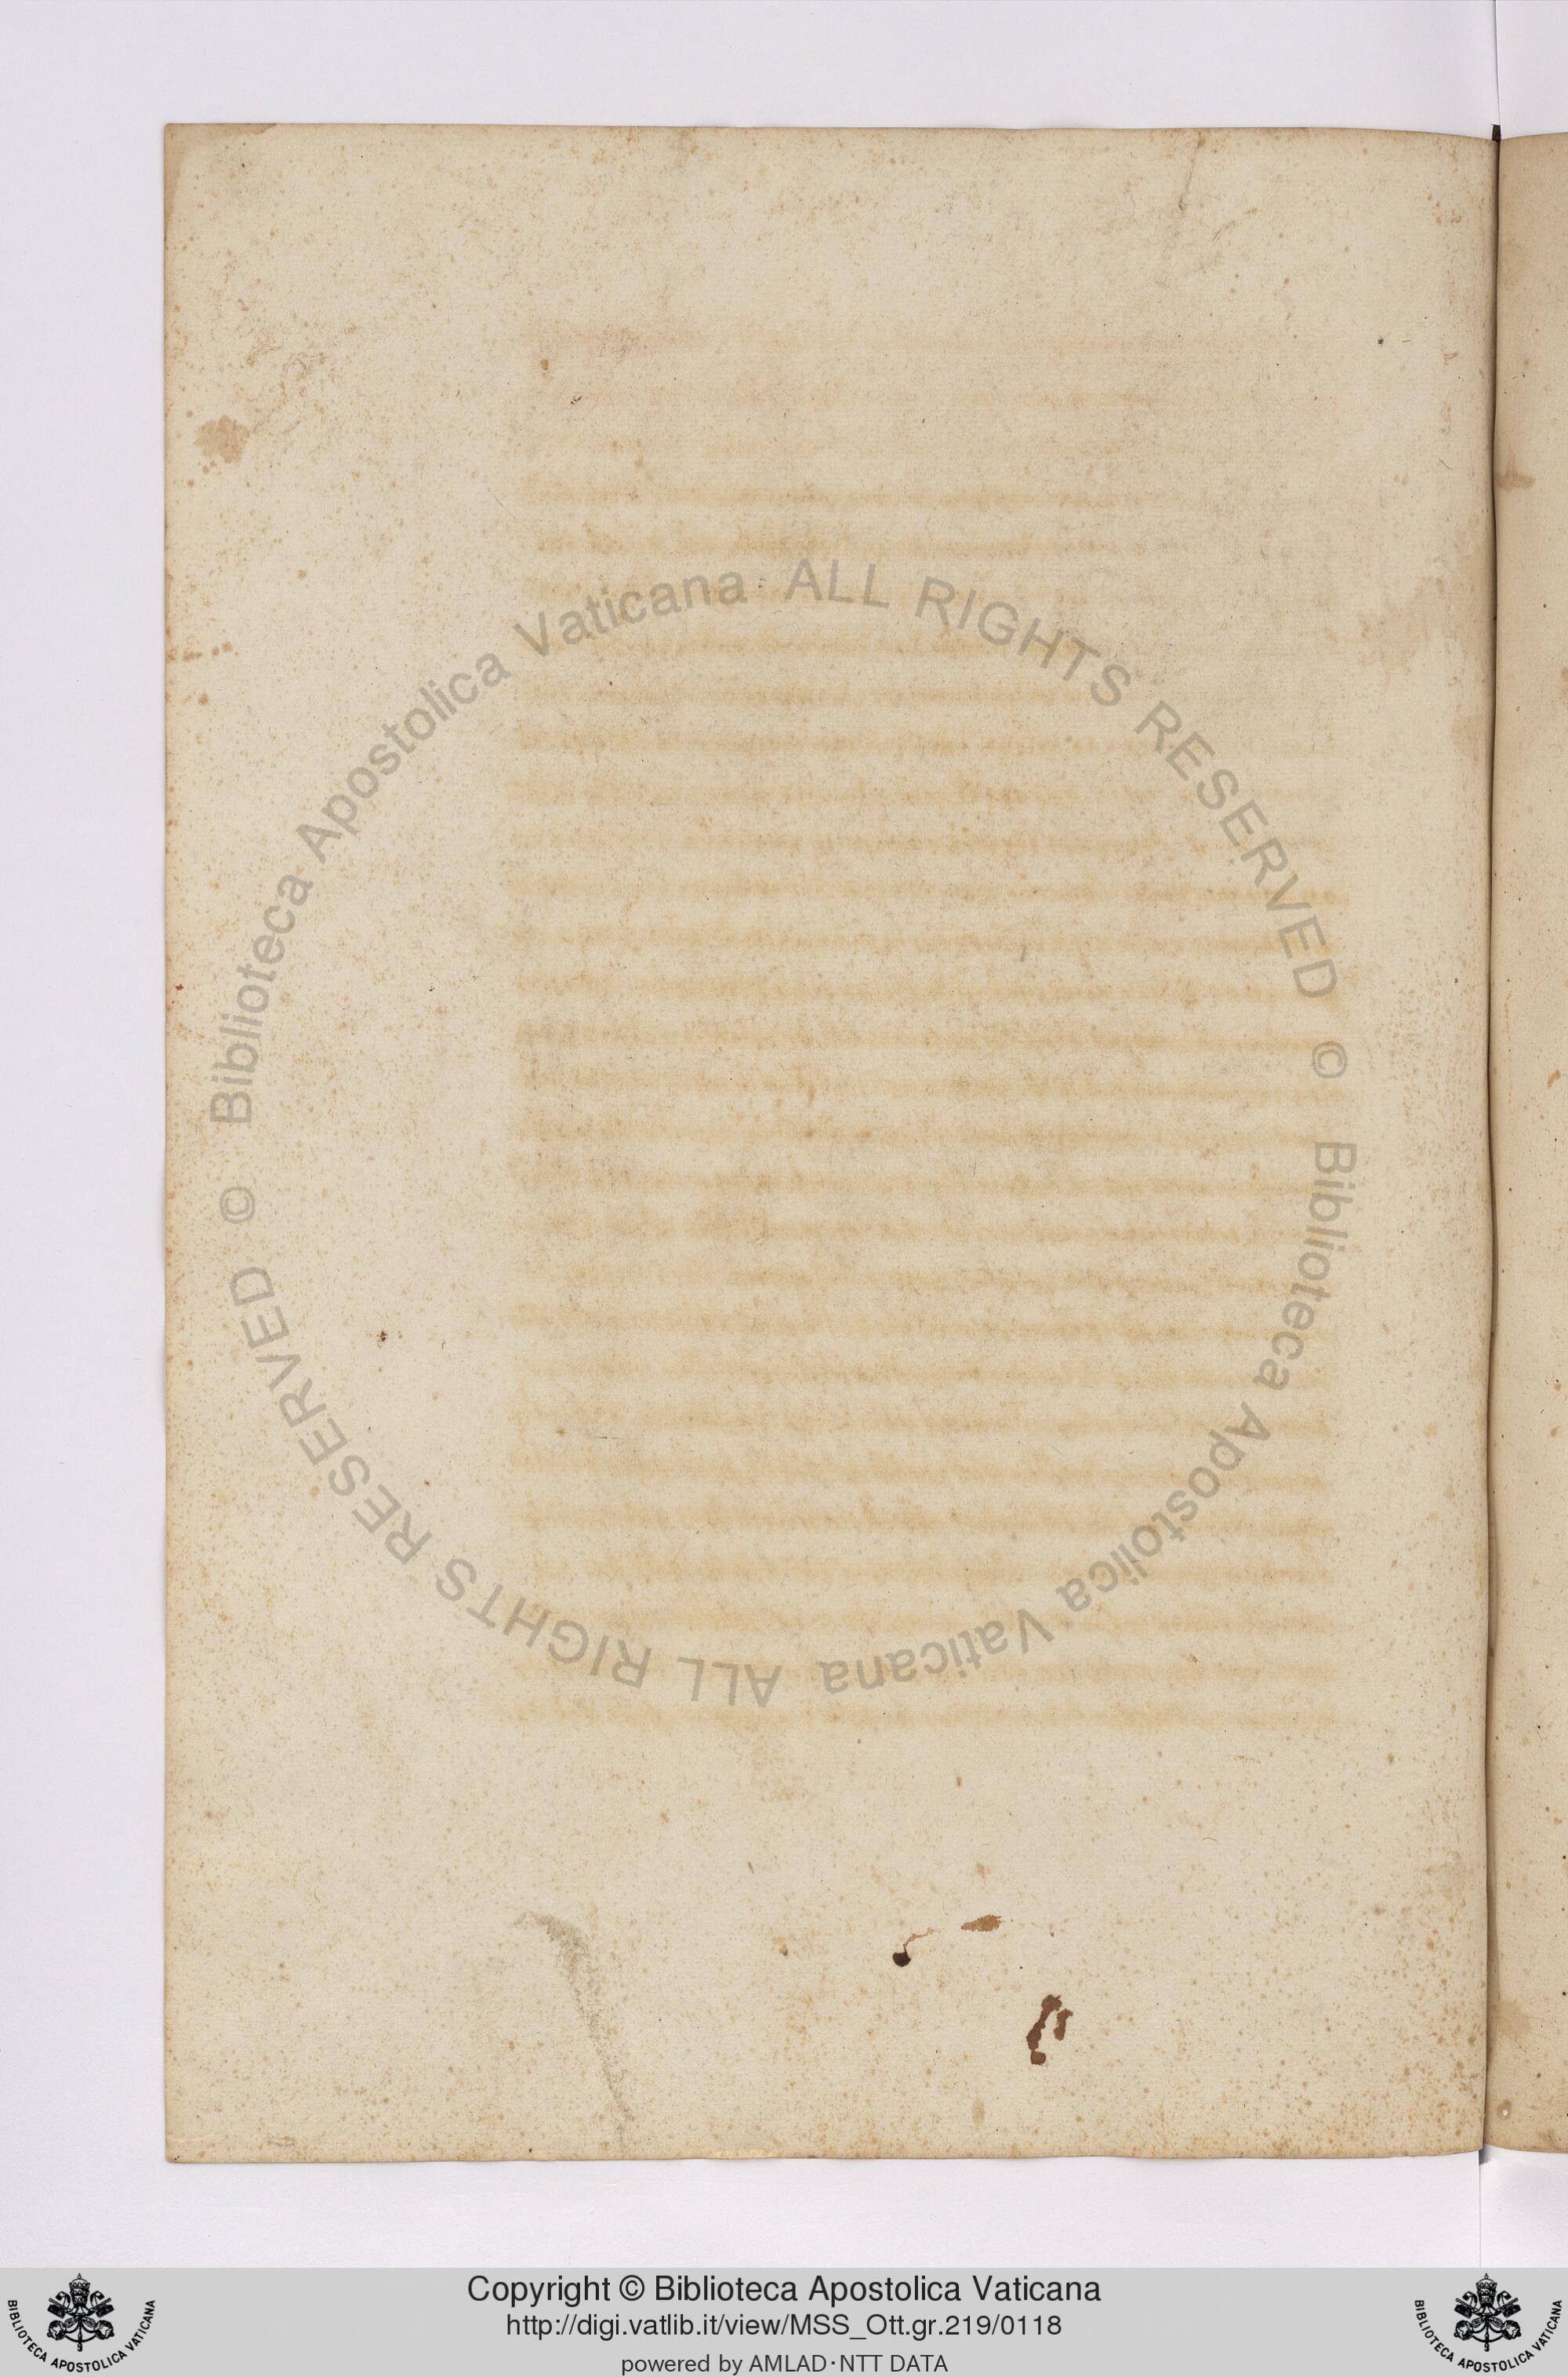 © Biblioteca Apostolica Vaticana ALL RIGHTS RESERVED
© Biblioteca Apostolica Vaticana ALL RIGHTS RESERVED
Copyright © Biblioteca Apostolica Vaticana
http://digi.vatlib.it/view/MSS_Ott.gr.219/0118
powered by AMLAD·NTT DATA
BIBLIOTECA APOSTOLICA VATICANA
BIBLIOTECA APOSTOLICA VATICANA